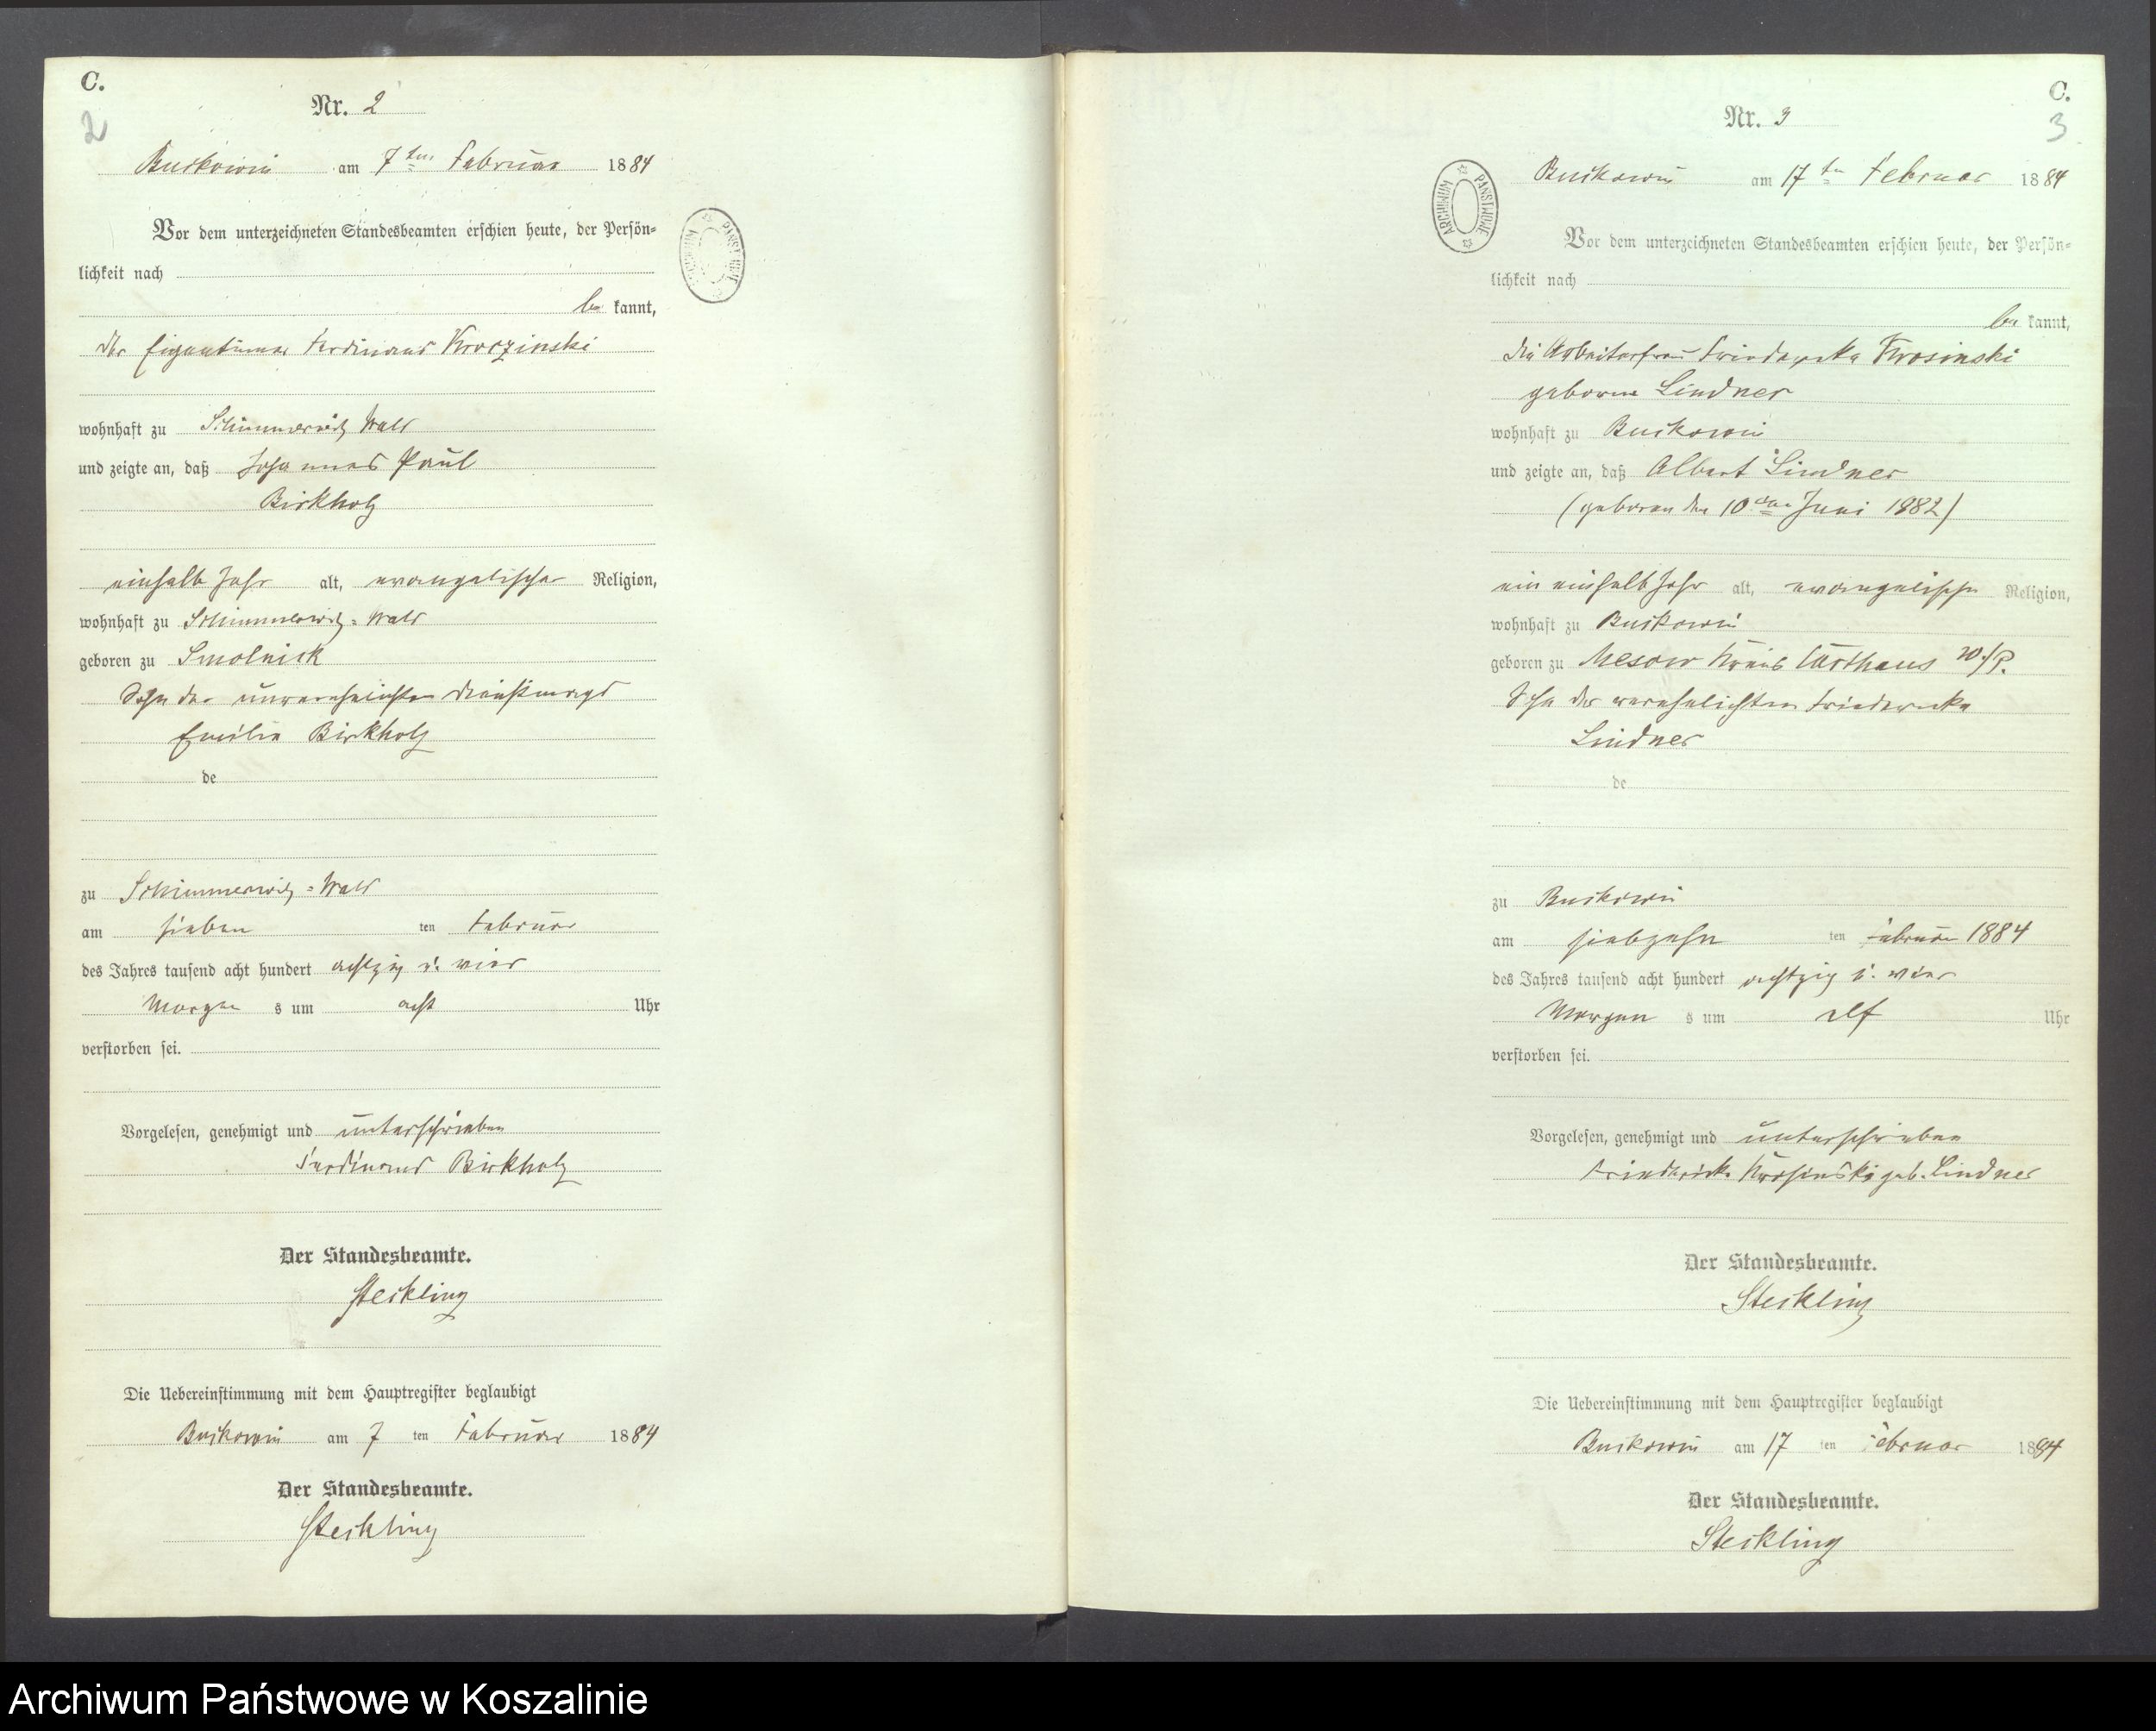 C.
2
Nr. 2
Buckowin am 7ten Februar 1884
Vor dem unterzeichneten Standesbeamten erschien heute, der Persön=
lichkeit nach
be kannt,
der Eigentümer Ferdinand
wohnhaft zu Schimmerwitz Wald
und zeigte an, daß Johannes Paul
Birkholz
einhalb Jahr alt, evangelischer Religion,
wohnhaft zu Schimmerwitz=Wald
geboren zu Smolnick
Sohn der unverehelichten Dienstmagd
Emilie Birkholz
de
zu Schimmerwitz=Wald
am sieben ten Februar
des Jahres tausend acht hundert achtzig u. vier
Morgen s um acht Uhr
verstorben sei.
Vorgelesen, genehmigt und unterschrieben
Ferdinand Birkholz
Der Standesbeamte.
Steckling
Die Uebereinstimmung mit dem Hauptregister beglaubigt
Buckowin am 7 ten Februar 1884
Der Standesbeamte.
Steckling
ARCHIWUM PAŃSTWOWE
C.
3
Nr. 3
Buckowin am 17ten Februar 1884
ARCHIWUM PAŃSTWOWE
Vor dem unterzeichneten Standesbeamten erschien heute, der Persön=
lichkeit nach
be kannt,
die Arbeiterfrau Friedericke Krosinski
geborne Lindner
wohnhaft zu Buckowin
und zeigte an, daß Albert Lindner
(geboren den 10ten Juni 1882)
ein einhalb Jahr alt, evangelischer Religion,
wohnhaft zu Buckowin
geboren zu Mesow Kreis Carthaus W/P.
Sohn der verehelichten Friedericke
Lindner
de
zu Buckowin
am siebzehn ten Februar 1884
des Jahres tausend acht hundert achtzig u. vier
Morgen s um elf Uhr
verstorben sei.
Vorgelesen, genehmigt und unterschrieben
Friedericke Krosinski geb. Lindner
Der Standesbeamte.
Steckling
Die Uebereinstimmung mit dem Hauptregister beglaubigt
Buckowin am 17 ten Februar 1884
Der Standesbeamte.
Steckling
Archiwum Państwowe w Koszalinie